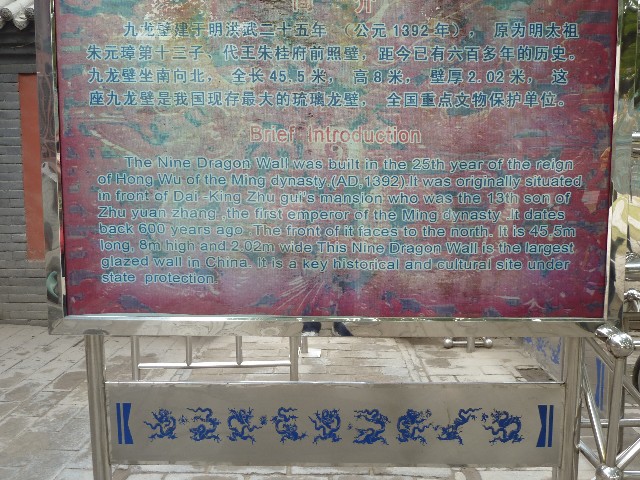 简介
九龙壁建于明洪武二十五年（公元1392年），原为明太祖
朱元璋第十三子，代王朱桂府前照壁，距今已有六百多年的历史。
九龙壁坐南向北，全长45.5米，高8米，壁厚2.02米，这
座九龙壁是我国现存最大的琉璃龙壁，全国重点文物保护单位。
Brief Introduction
The Nine Dragon Wall was built in the 25th year of the reign
of Hong Wu of the Ming dynasty.(AD,1392).It was originally situated
in front of Dai-King Zhu gui's mansion who was the 13th son of
Zhu yuan zhang, the first emperor of the Ming dynasty .It dates
back 600 years ago. The front of it faces to the north. It is 45,5m
long, 8m high and 2.02m wide This Nine Dragon Wall is the largest
glazed wall in China. It is a key historical and cultural site under
state protection.